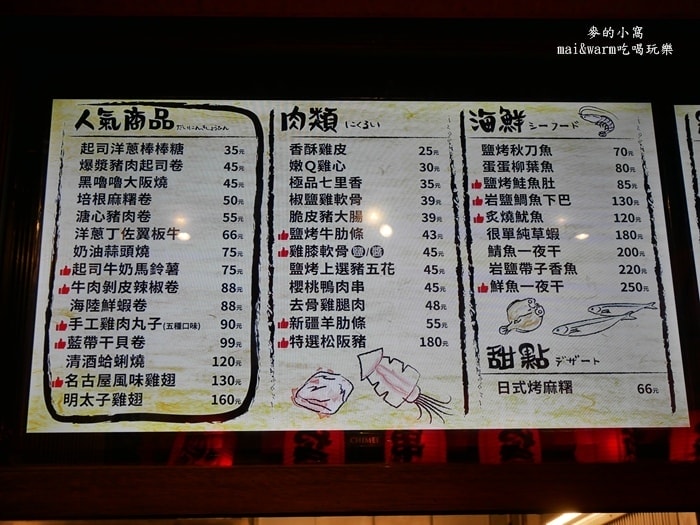 麥的小窩
mai&warm吃喝玩樂
人氣商品
起司洋蔥棒棒糖 35元
爆漿豬肉起司卷 45元
黑嚕嚕大阪燒 45元
培根麻糬卷 50元
溏心豬肉卷 55元
洋蔥丁佐翼板牛 66元
奶油蒜頭燒 75元
起司牛奶馬鈴薯 75元
牛肉剝皮辣椒卷 88元
海陸鮮蝦卷 88元
手工雞肉丸子(五種口味) 90元
藍帶干貝卷 99元
清酒蛤蜊燒 120元
名古屋風味雞翅 130元
明太子雞翅 160元
肉類 にくるい
香酥雞皮 25元
嫩Q雞心 30元
極品七里香 35元
椒鹽雞軟骨 39元
脆皮豬大腸 39元
鹽烤牛肋條 43元
雞膝軟骨 鹽/醬 45元
鹽烤上選豬五花 45元
櫻桃鴨肉串 45元
去骨雞腿肉 48元
新疆羊肋條 55元
特選松阪豬 180元
海鮮 シーフード
鹽烤秋刀魚 70元
蛋蛋柳葉魚 80元
鹽烤鮭魚肚 85元
岩鹽鯛魚下巴 130元
炙燒魷魚 120元
很單純草蝦 180元
鯖魚一夜干 200元
岩鹽帶子香魚 220元
鮮魚一夜干 250元
甜點 デザート
日式烤麻糬 66元